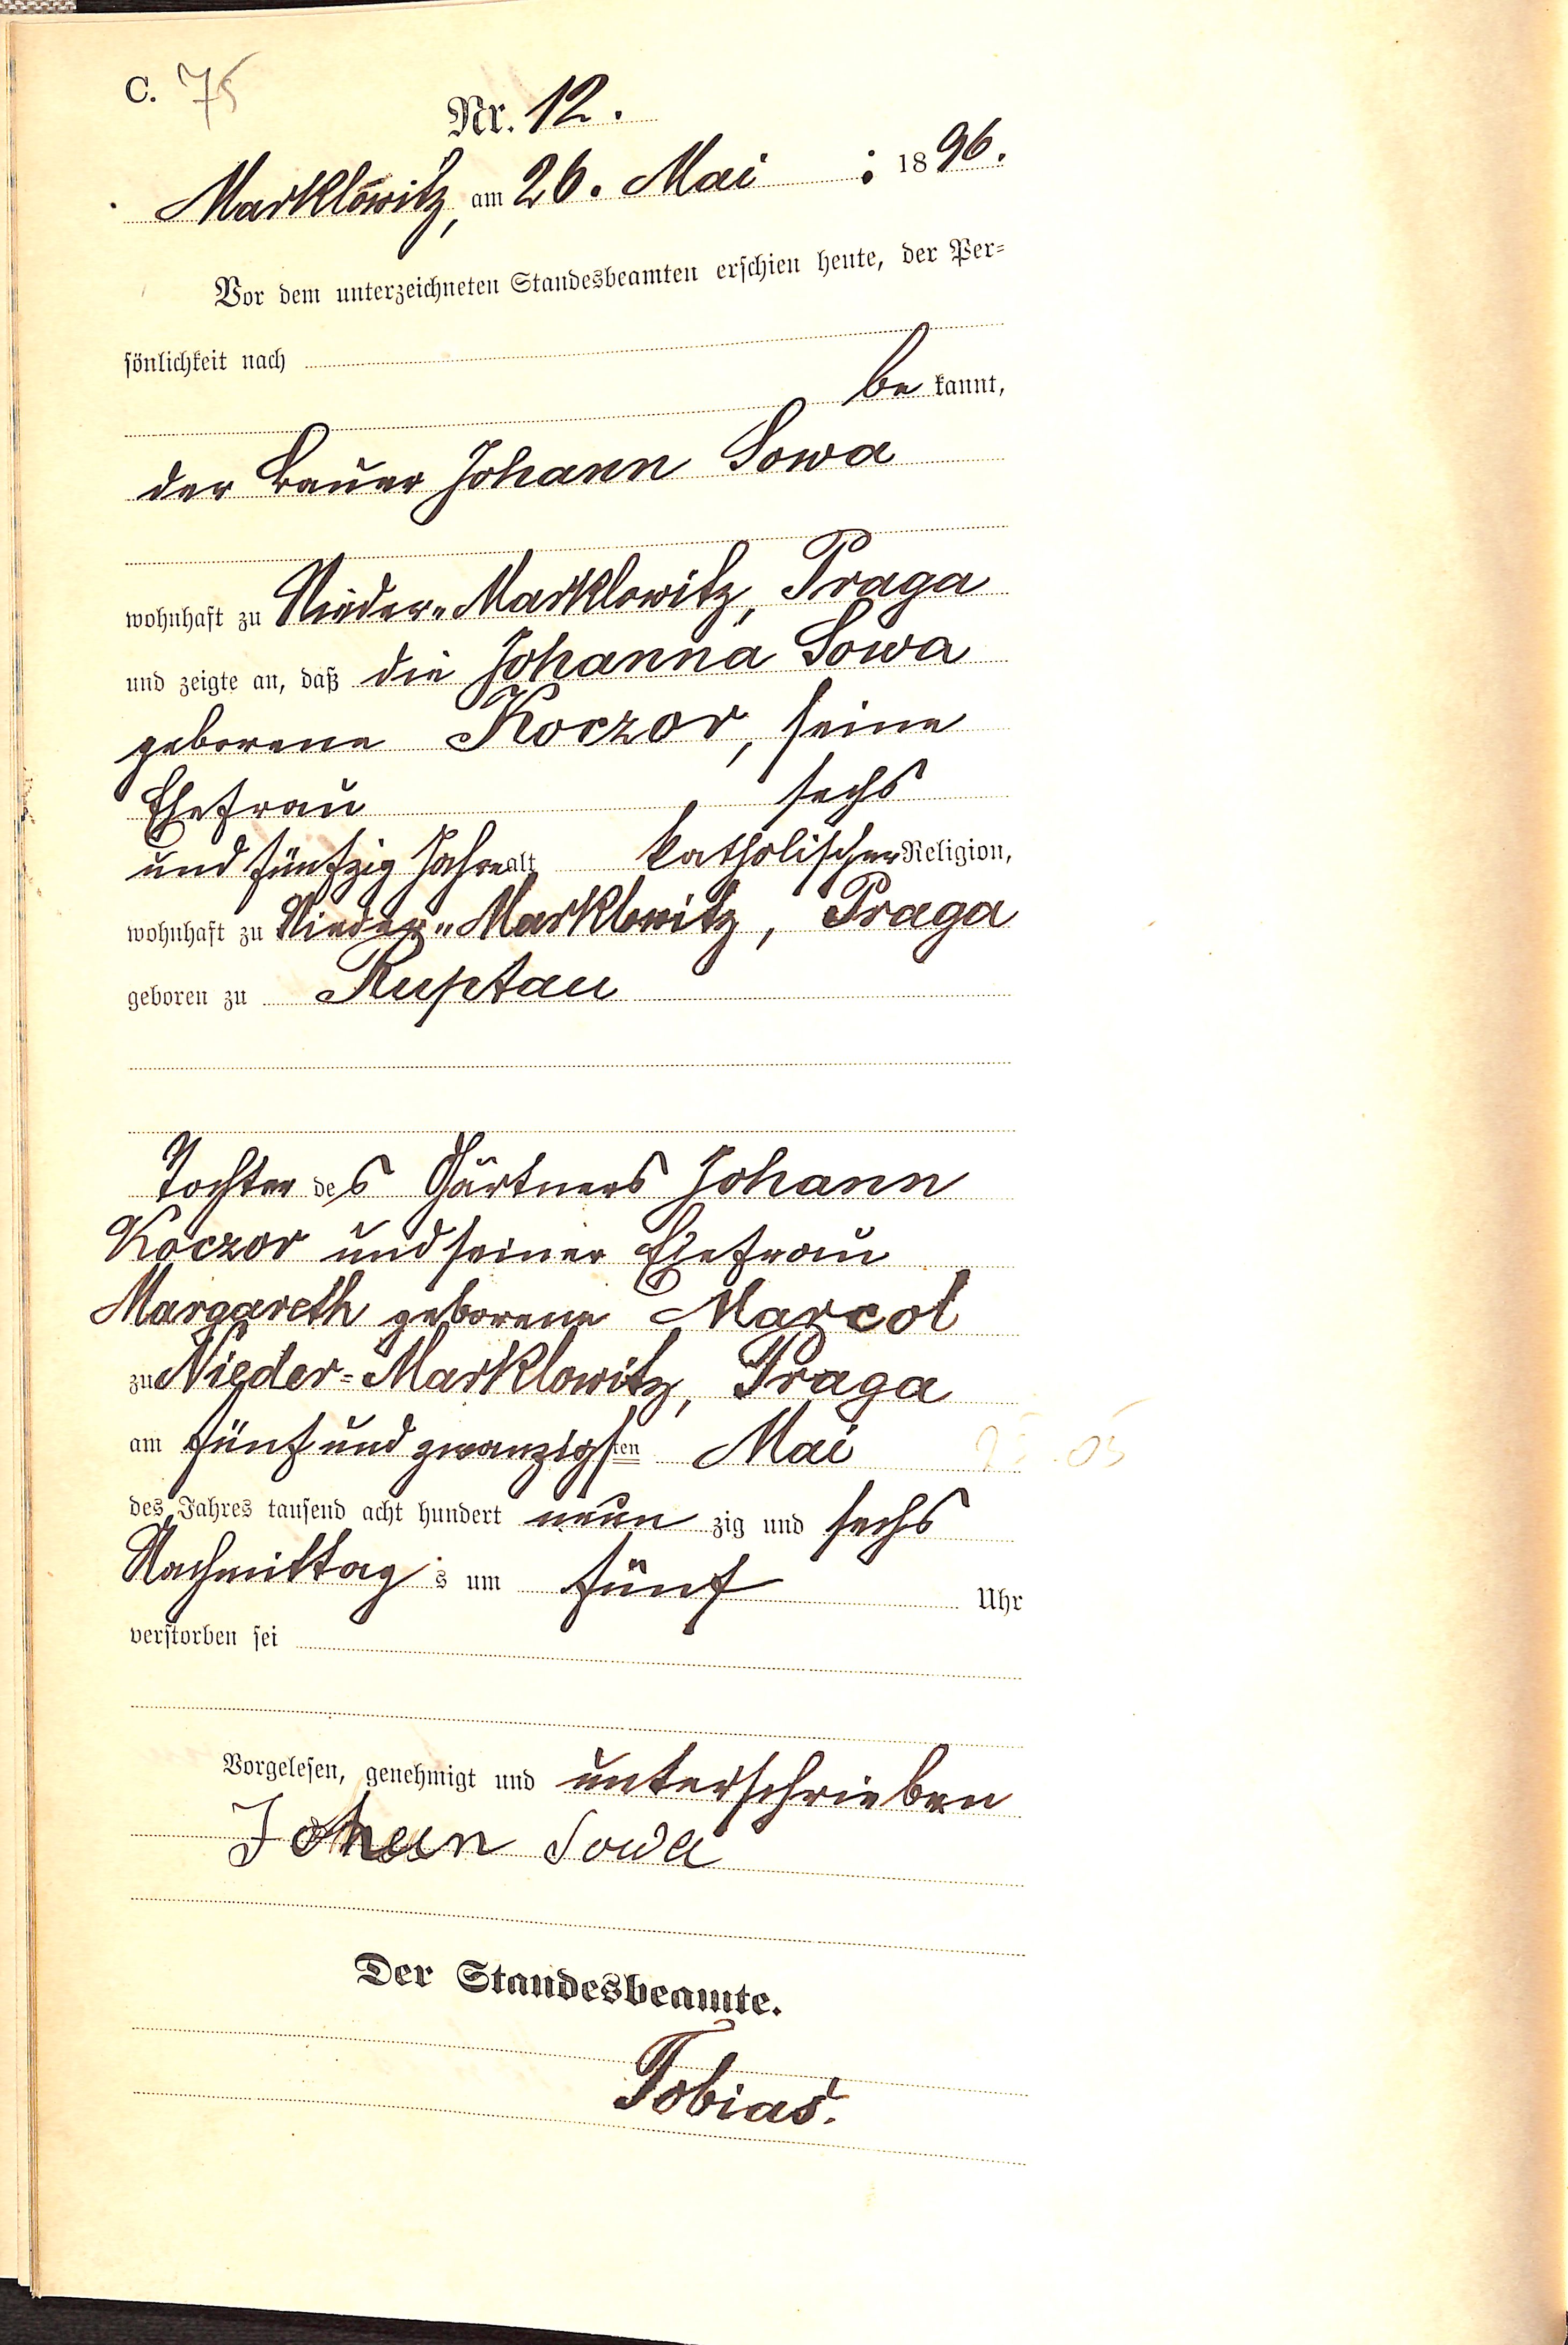 C. 75
Nr. 12.
Marklowitz, am 26. Mai 1896.
Vor dem unterzeichneten Standesbeamten erschien heute, der Per=
sönlichkeit nach
be kannt,
der Bauer Johann Sowa
wohnhaft zu Nieder-Marklowitz, Praga
und zeigte an, daß die Johanna Sowa
geborene Koczor, seine
Ehefrau, sechs
und fünfzig Jahre alt, katholischer Religion,
wohnhaft zu Nieder-Marklowitz, Praga
geboren zu Ruptau
Tochter des Gärtners Johann
Koczor und seiner Ehefrau
Margareth geborene Marcol
zu Nieder-Marklowitz, Praga
am fünf und zwanzigsten Mai
des Jahres tausend acht hundert neun zig und sechs
Nachmittag s um fünf Uhr
verstorben sei
Vorgelesen, genehmigt und unterschrieben
Johan Sowa
Der Standesbeamte.
Tobias.